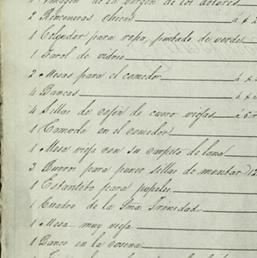 1 Imagen de la Virgen de los dolores
2 Rinconeras chicas à $ 2
1 Colgador para ropa, pintado de verde
1 Farol de vidrio
2 Mesas para el comedor à $
4 Bancas à $
4 Sillas de cojin de cuero viejas à 6
1 Camoda en el comedor
1 Mesa vieja con su carpeta de lana
3 Burros para poner sillas de montar
1 Estantito para papeles
1 Cuadro de la Sma Trinidad
1 Mesa muy vieja
1 Banco en la cosina